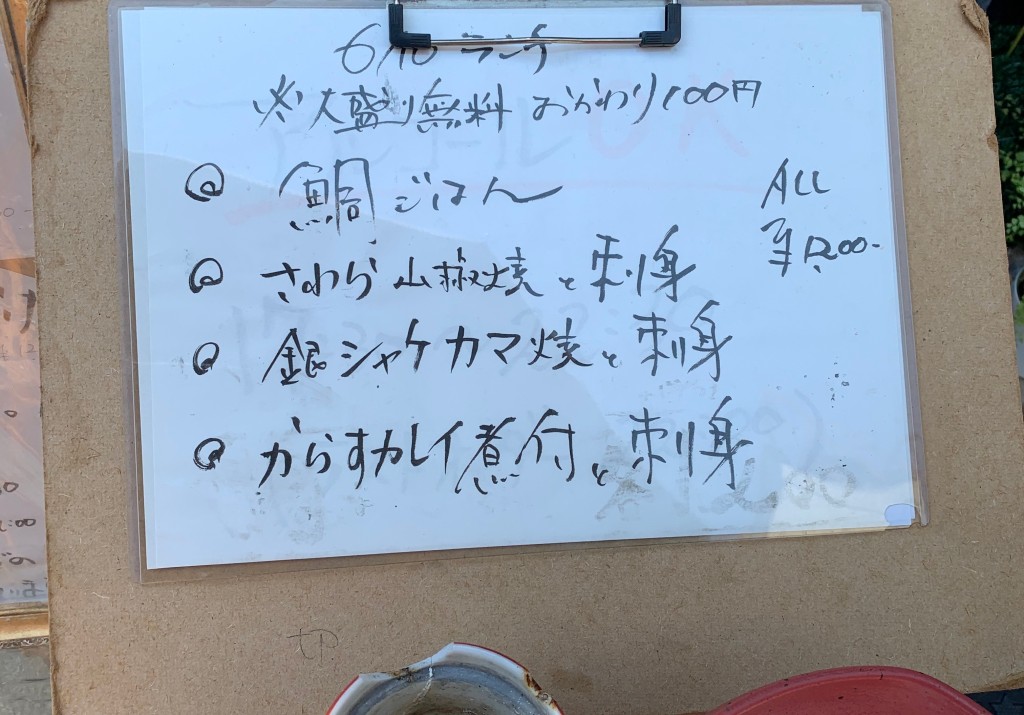 6/10 ランチ
※大盛り無料 おかわり100円
鯛ごはん
ALL
¥1,200-
さわら山椒焼と刺身
銀シャケカマ焼と刺身
からすカレイ煮付と刺身